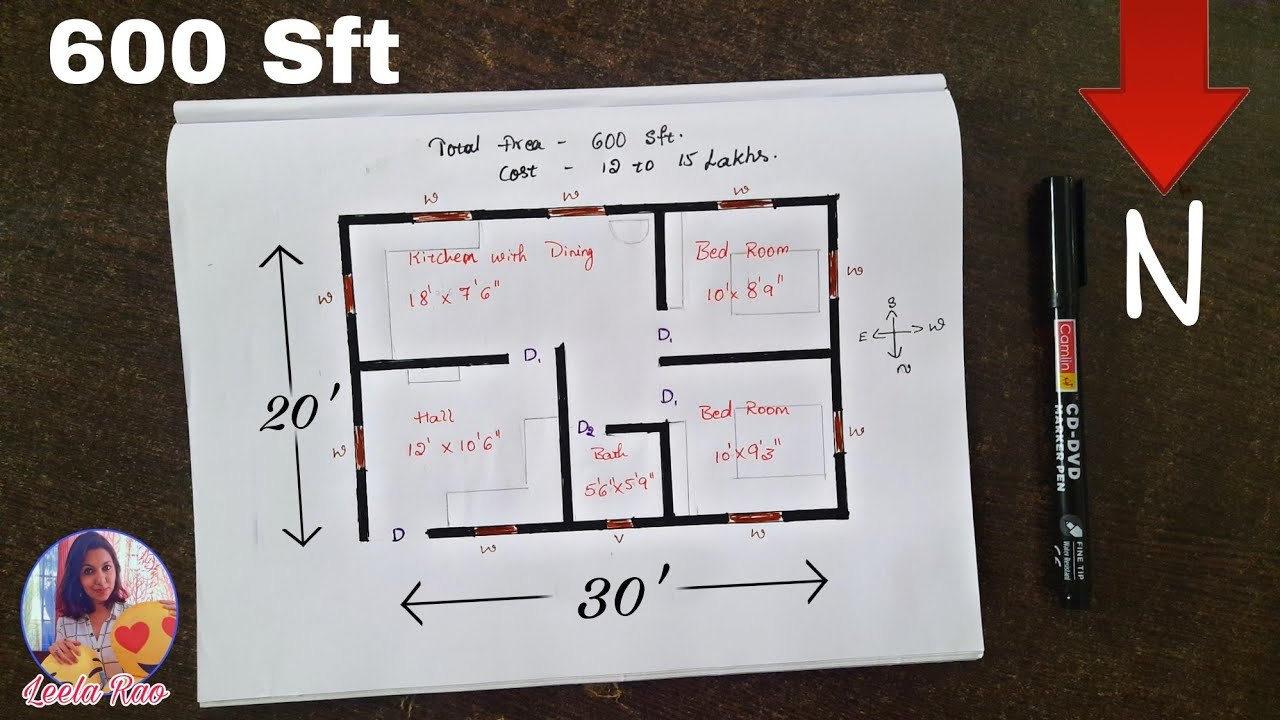 600 Sft
Total Area - 600 Sft.
Cost - 12 to 15 Lakhs.
W W W
Kitchen with Dining
18' x 7'6"
Bed Room
10' x 8'9"
W
W
S
E W
N
D1
D1
20'
Hall
12' x 10'6"
D1
Bed Room
10' x 9'3"
D2
Bath
5'6" x 5'9"
W
W
D
W V W
30'
N
Camlin
CD-DVD
MARKER PEN
FINE TIP
Water Resistant
Leela Rao